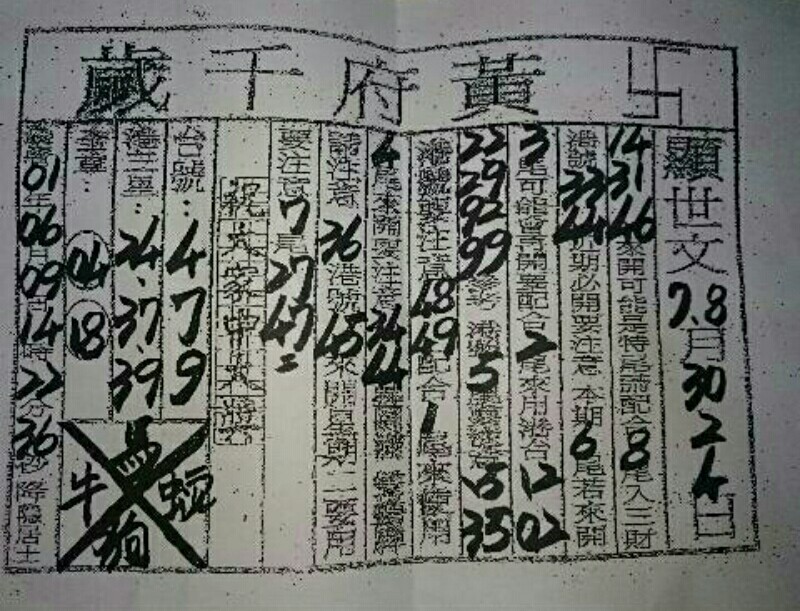 卐 黃府千歲
顯世文 7.8月30 2 4日
14 31 46來開可能是特尾請配合8尾入三財
港號33 44近期必開要注意 本期6尾若來開
3尾可能會再開要配合2尾來用港台12 02
22 29 92 99參考 港號5尾須注意15 35
港號要注意48 49配合1尾來使用
4尾來開要注意34 44
請注意36港號45來開星期六二要用
要注意7尾27 47=
祝大家中大獎
台號：4 7 9
港三星：24.37.39
金章：04 18
01年06月09日14時22分36秒降隱居士
馬
牛
狗